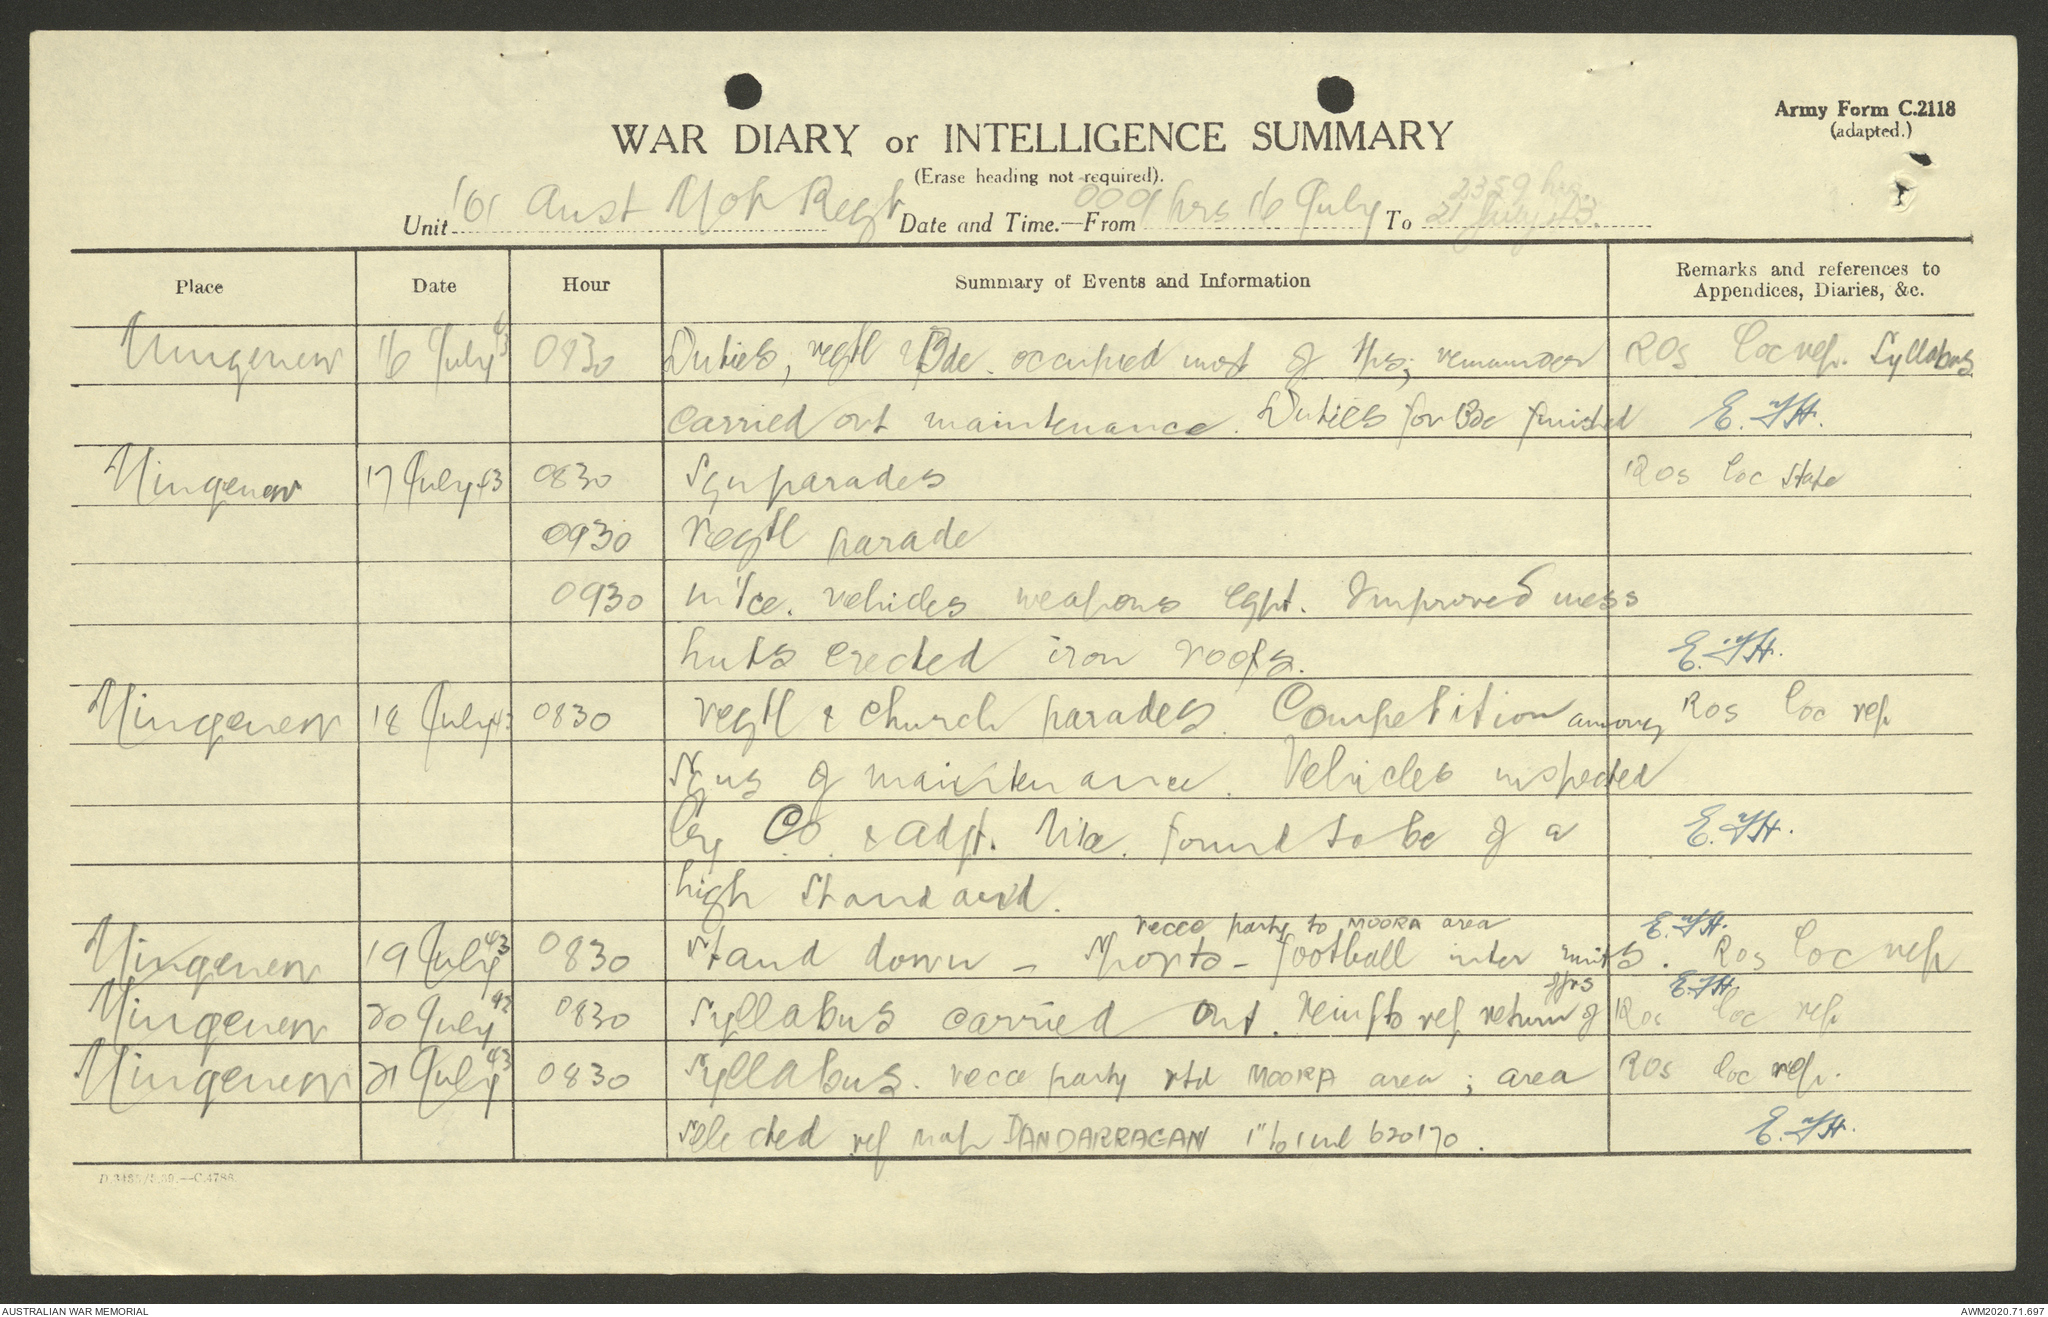 Army Form C.2118
(adapted.)
WAR DIARY or INTELLIGENCE SUMMARY
(Erase heading not required).
Unit 101 Aust Mot Regt Date and Time.—From 0001 hrs 16 July To 2359 hrs. 21 July 43.
Place Date Hour Summary of Events and Information Remarks and references to Appendices, Diaries, &c.
Mingenew 16 July 43 0830 Duties, regtl & Bde. occupied most of tps; remainder ROs Loc rep. Syllabus
carried out maintenance. Duties for Bde finished E.
Mingenew 17 July 43 0830 Sqn parades ROs Loc State
0930 Regtl parade
0930 m'tce. vehicles weapons eqpt. Improved mess
huts erected iron roofs. E.
Mingenew 18 July 43 0830 regtl & church parades. Competition among ROs Loc rep
Sqns of maintenance. Vehicles inspected
by CO. & adjt. found to be of a E.
high standard.
recce party to MOORA area E.
Mingenew 19 July 43 0830 Stand down - Sports - football inter units. ROs Loc rep
offrs E.
Mingenew 20 July 43 0830 Syllabus carried out. reinfts ref return of ROs Loc rep
Mingenew 21 July 43 0830 Syllabus. recce party rtd MOORA area; area ROs Loc rep.
selected ref map DANDARRAGAN 1" to 1 ml 620170. E.
D.3485/5.39.—C.4788.
AUSTRALIAN WAR MEMORIAL
AWM2020.71.697